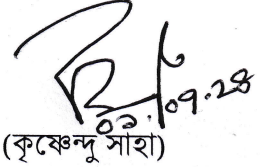 ০১.০৭.২৪
(কৃষ্ণেন্দু সাহা)